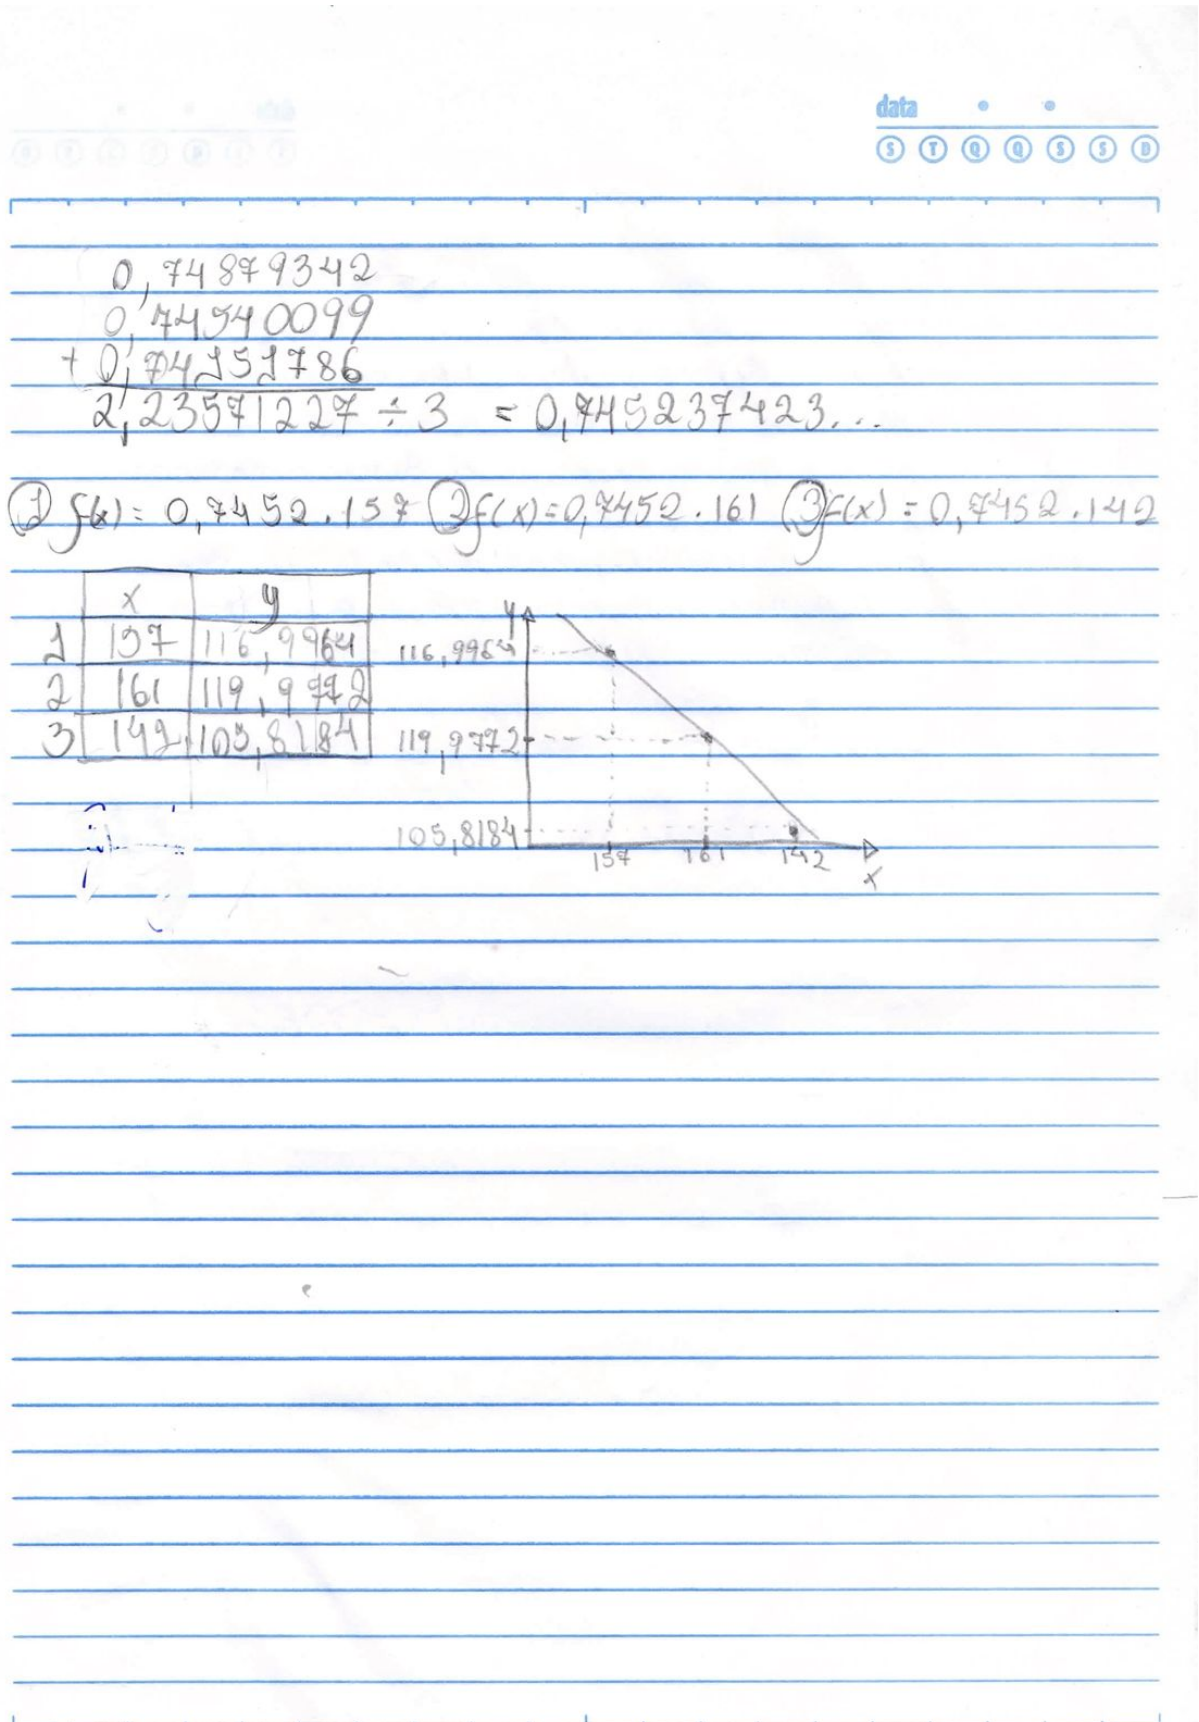 data
S T Q Q S S D
0,74879342
0,74540099
+ 0,74151786
2,23571227 ÷ 3 = 0,745237423...
① f(x) = 0,7452.157 ② f(x) = 0,7452.161 ③ f(x) = 0,7452.142
x y
1 157 116,9964
2 161 119,9772
3 142 105,8184
y
116,9964
119,9772
105,8184
157 161 142
x